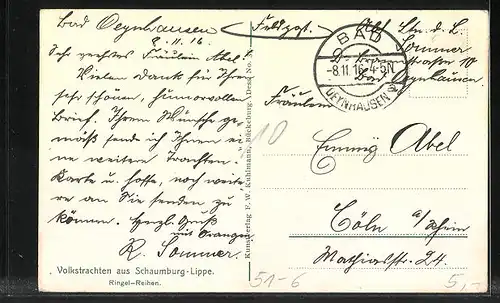 Bad Oeynhausen
8.11.16.
Sehr geehrtes Fräulein Abel!
Vielen Dank für Ihren
sehr schönen, humorvollen
Brief. Ihrem Wunsche ge-
mäß sende ich Ihnen ei-
ne weitere Trachten-
Karte u. hoffe, noch weite-
re an Sie senden zu
können. Herzl. Gruß
R. Sommer.
Volkstrachten aus Schaumburg-Lippe.
Ringel-Reihen.
Kunstverlag F. W. Kuhlmann, Bückeburg.
Feldpost.
Abs. Ltn. d. L.
Sommer
Bad Oeynhausen
BAD
-8.11.16.4-5N
OEYNHAUSEN
Fräulein
10
Emmy Abel
Cöln a/Rhein
Mathiasstr. 24.
51-6
5,-